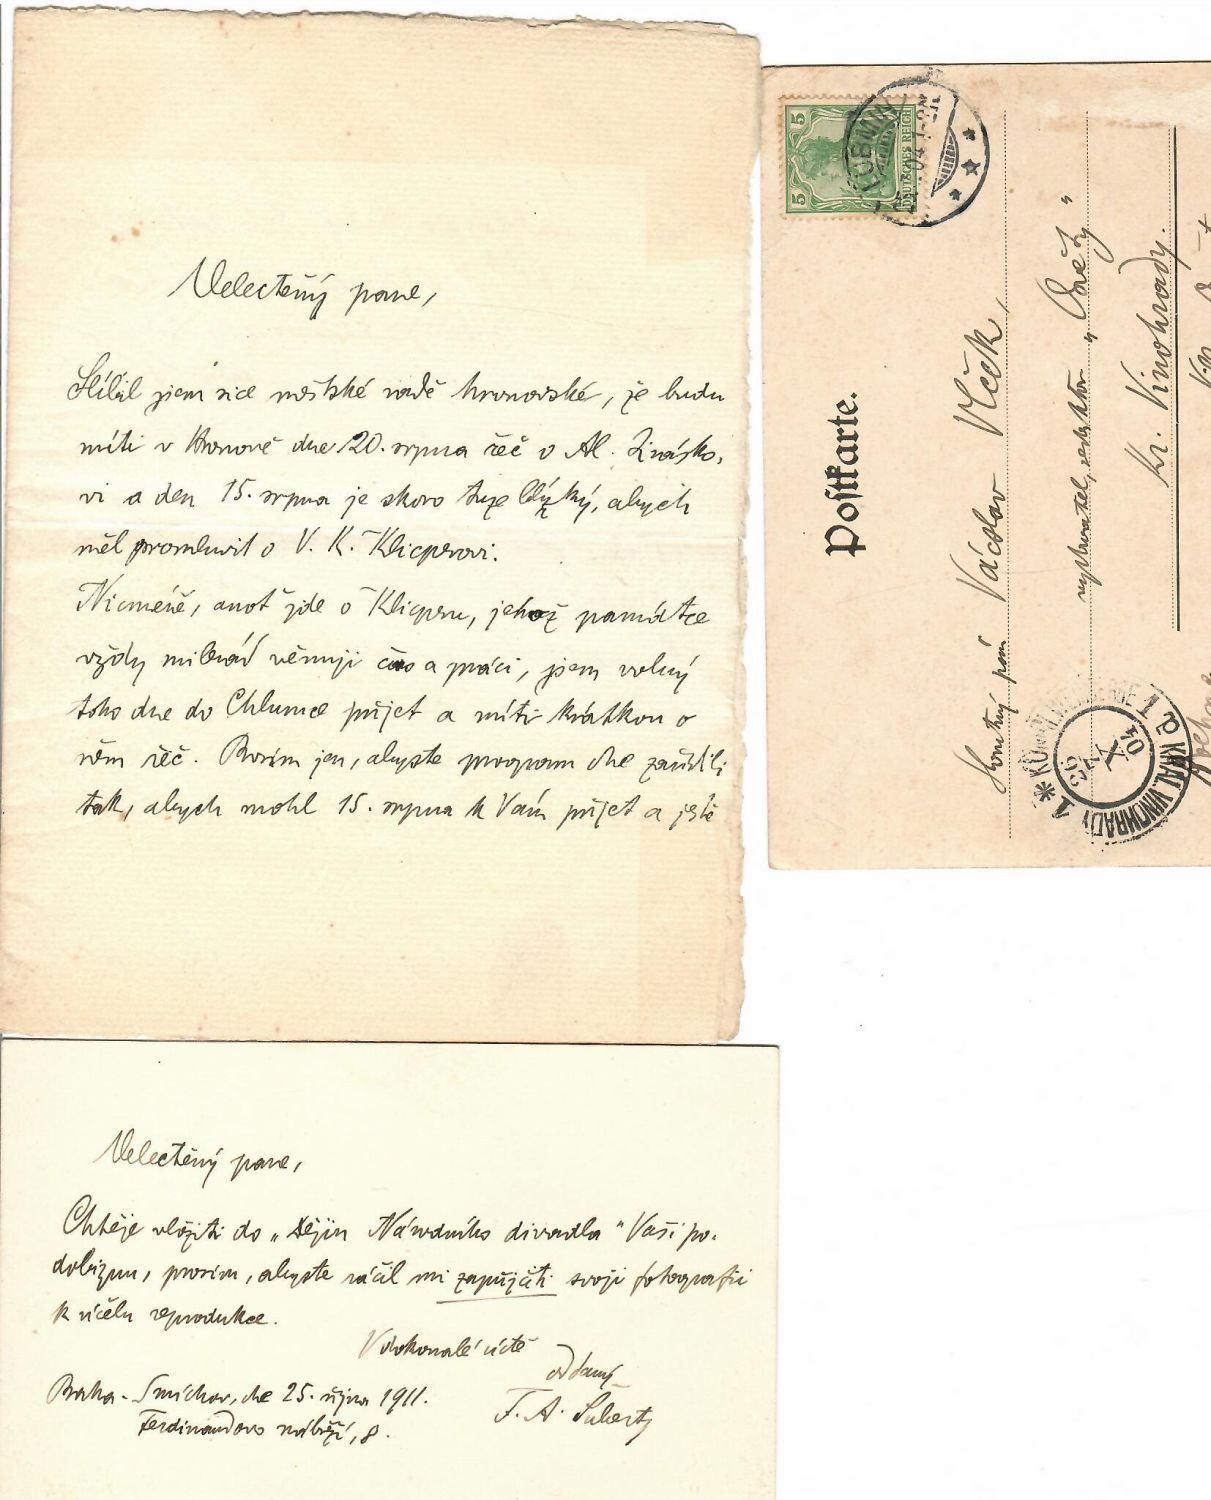 Velectěný pane,
Slíbil jsem sice městské radě hronovské, že budu
míti v Hronově dne 20. srpna řeč o Al. Jirásko-
vi a den 15. srpna je skoro tuze blízký, abych
měl promluvit o V. K. Klicperovi.
Nicméně, anoť jde o Klicperu, jehož památce
vždy milerád věnuji čas a práci, jsem volný
toho dne do Chlumce přijet a míti krátkou o
něm řeč. Prosím jen, abyste program dne zařídili
tak, abych mohl 15. srpna k Vám přijet a ještě
Velectěný pane,
Chtěje vložiti do „Dějin Národního divadla“ Vaši po-
dobiznu, prosím, abyste ráčil mi zapůjčiti svoji fotografii
k účelu reprodukce.
V dokonalé úctě
oddaný
F. A. Šubert
Praha - Smíchov, dne 25. října 1911.
Ferdinandovo nábřeží, 8.
5 5
DEUTSCHES REICH
LUBMIN
04
Postkarte.
pán Václav Vlček,
redaktor „Osvěty“
Kr. Vinohrady.
KRÁL. VINOHRADY 1
X
04